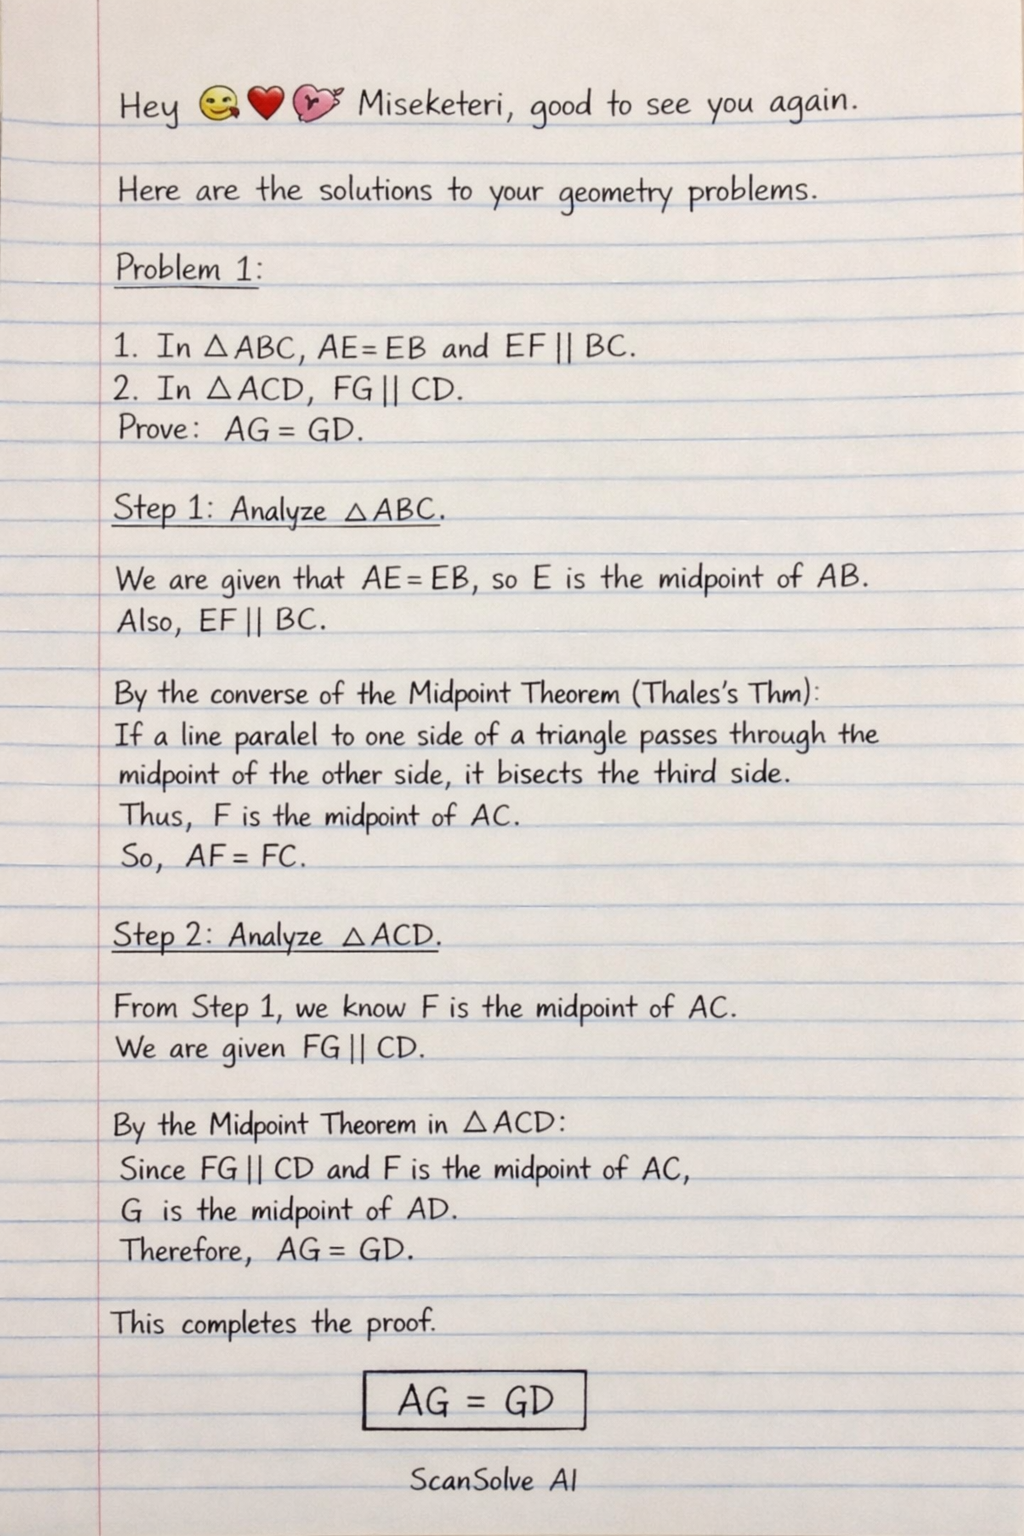 Hey 😋❤️💘 Miseketeri, good to see you again.
Here are the solutions to your geometry problems.
Problem 1:
1. In △ABC, AE = EB and EF || BC.
2. In △ACD, FG || CD.
Prove: AG = GD.
Step 1: Analyze △ABC.
We are given that AE = EB, so E is the midpoint of AB.
Also, EF || BC.
By the converse of the Midpoint Theorem (Thales's Thm):
If a line paralel to one side of a triangle passes through the
midpoint of the other side, it bisects the third side.
Thus, F is the midpoint of AC.
So, AF = FC.
Step 2: Analyze △ACD.
From Step 1, we know F is the midpoint of AC.
We are given FG || CD.
By the Midpoint Theorem in △ACD:
Since FG || CD and F is the midpoint of AC,
G is the midpoint of AD.
Therefore, AG = GD.
This completes the proof.
AG = GD
ScanSolve AI